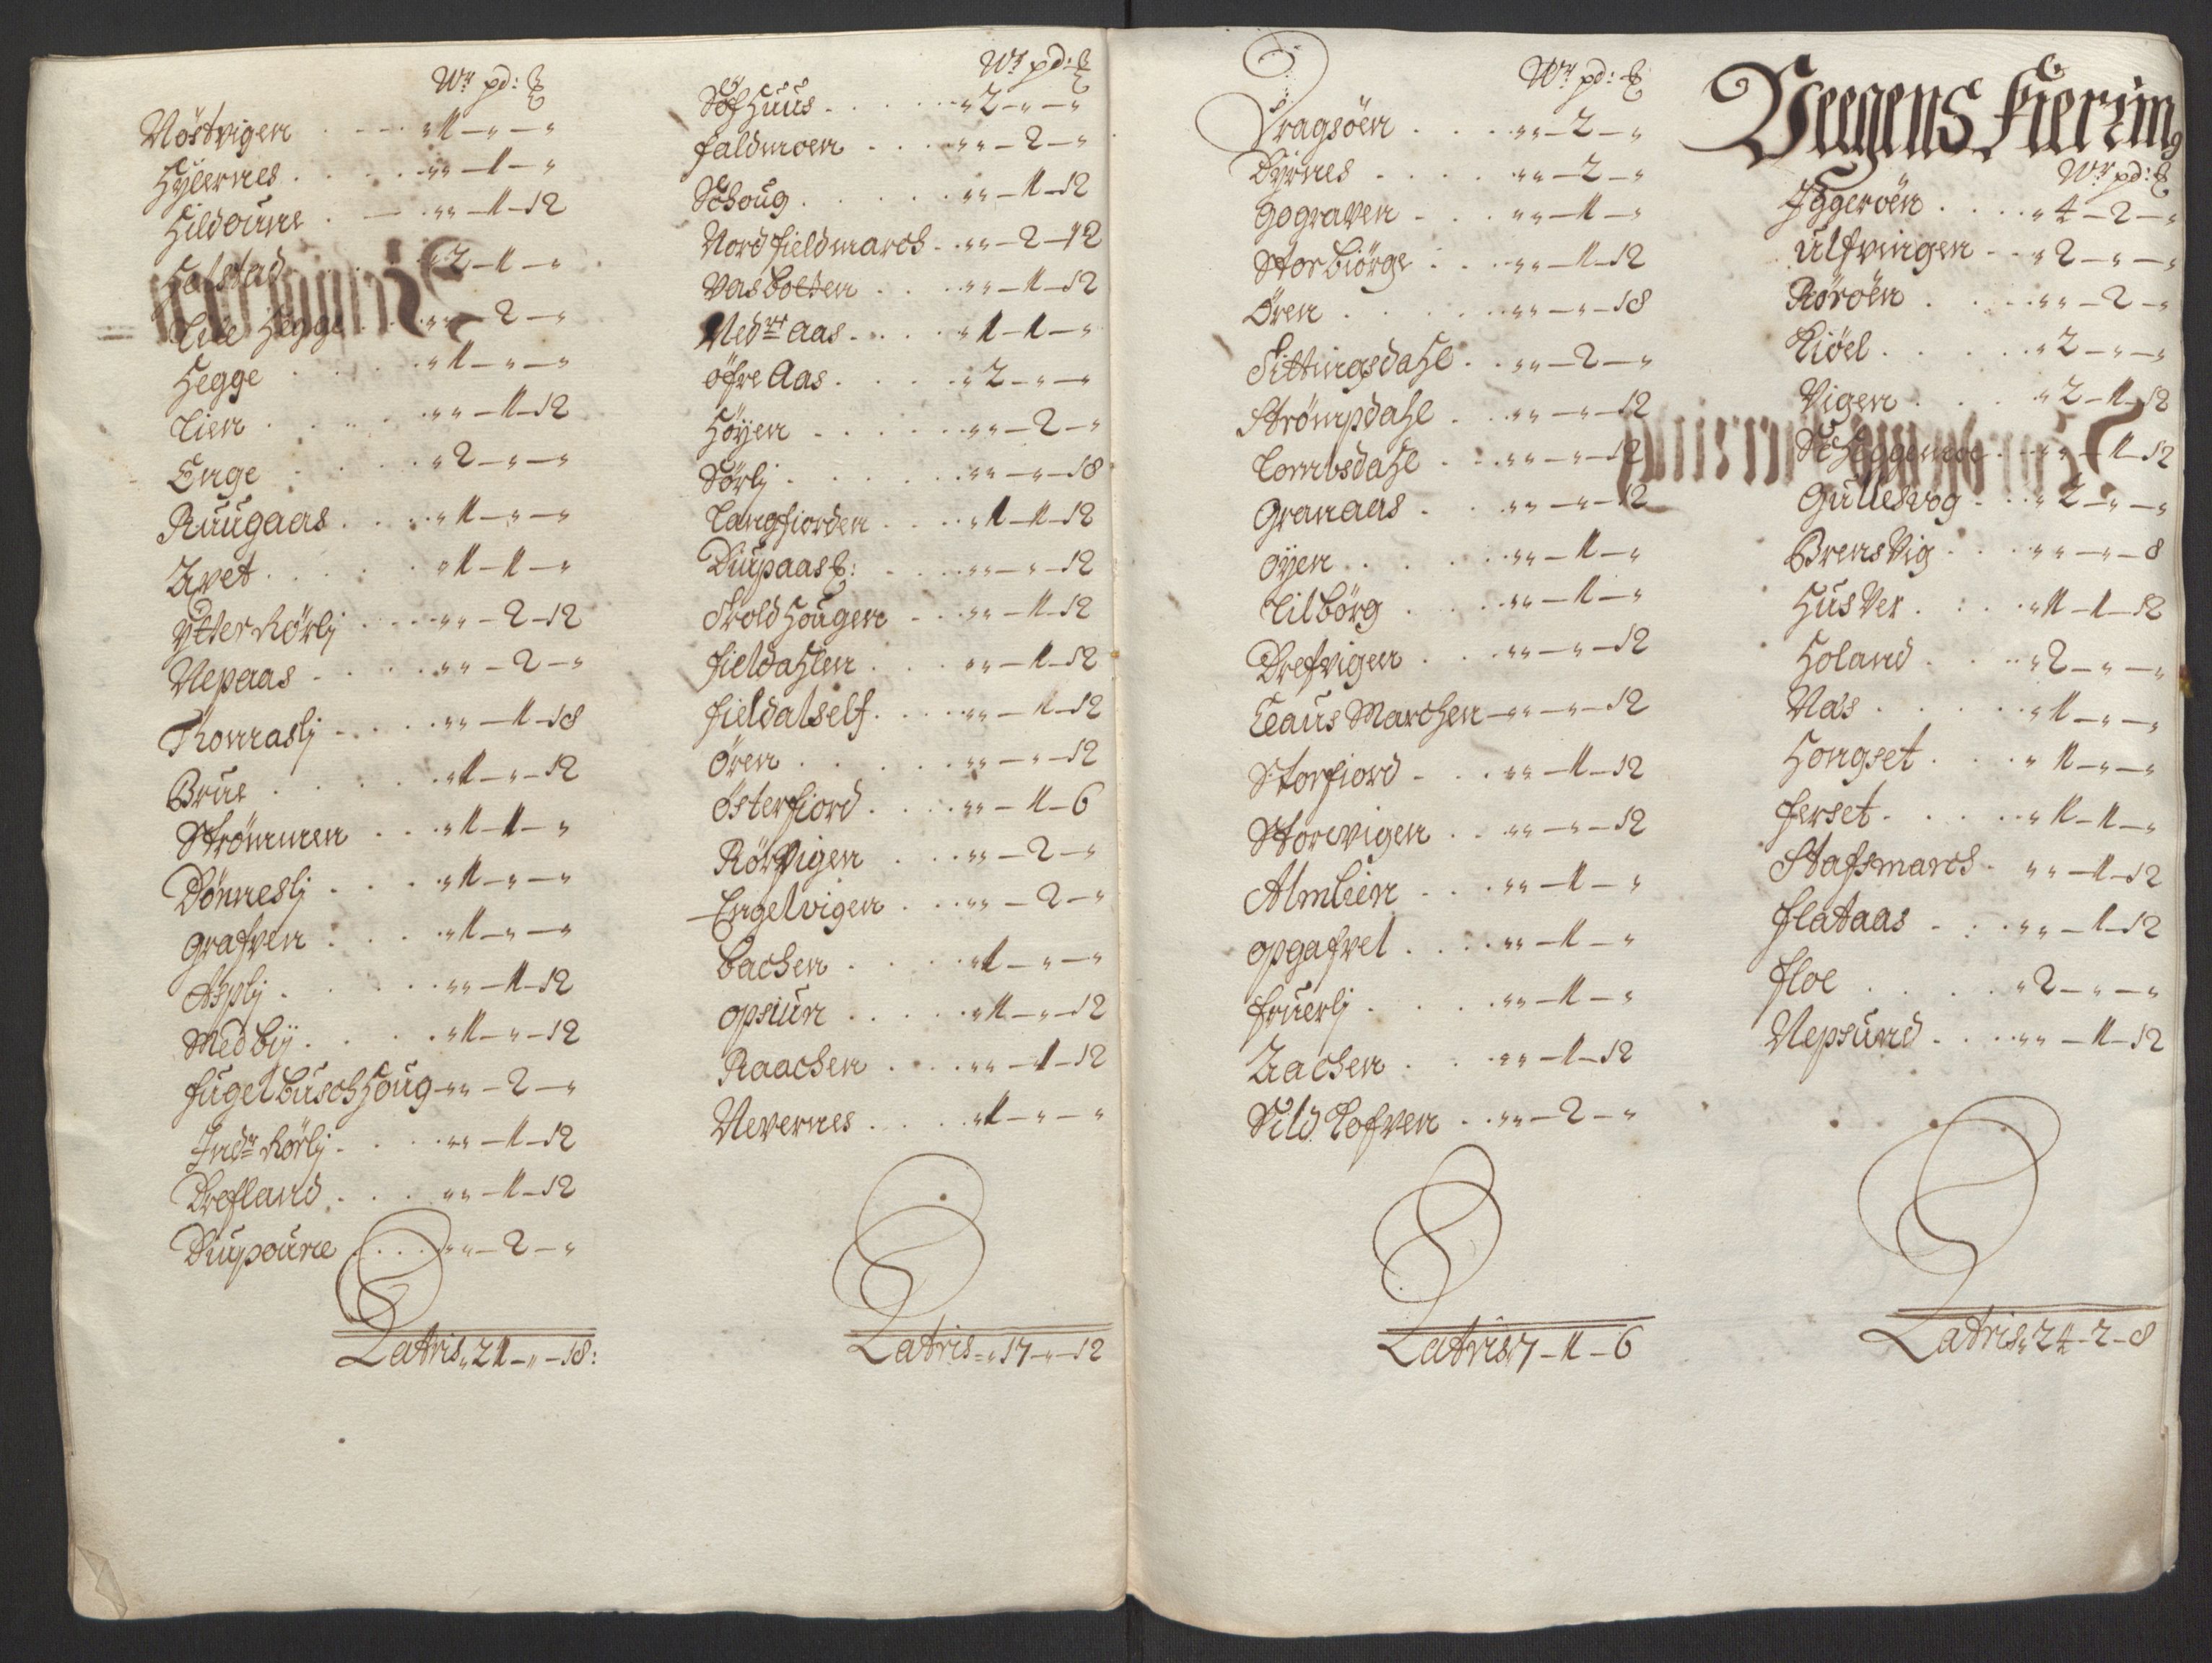 Wr pd: ℔
Nöstvigen . . . „ 1 — „ — „
Hylernes . . . „ „ — 1 — „
Hildoune . — . „ „ — 1 — 12
Halstad . . . „ 2 — 1 — „
Lille Hegge . . . „ „ — 2 — „
Hegge . . . . „ 1 — „ — „
Lien . . . . „ „ — 1 — 12
Enge . . . . „ 2 — „ — „
Ruugaas . . . . „ 1 — „ — „
Zvet . . . . „ 1 — 1 — „
Ytter Rörlj . . . „ „ — 2 — 12
Nepaas . . . . „ „ — 2 — „
Thonraslj . . . „ „ — 1 — 18
Brue . . . . „ 1 — „ — 12
Strömmen . . . „ 1 — 1 — „
Dönneslj . . . „ 1 — „ — „
Grafven . . . . „ 1 — „ — „
Asplj . . . . „ „ — 1 — 12
Medbÿ . . . . „ 1 — „ — 12
Fugelbuschhoug „ „ — 2 — „
Indr Rörlj . . . „ „ — 1 — 12
Drefland . . . „ „ — 1 — 12
Diupoune . . . „ „ — 2 — „
Latris „ 21 — „ — 18:
Wr pd: ℔
Söfhuus . . . . „ 2 — „ — „
Faldmoen . . . „ „ — 2 — „
Schoug . . . . „ „ — 1 — 12
Nordfieldmarch . „ „ — 2 — 12
Vasbotten . . . „ „ — 1 — 12
Nedre Aas . . . „ 1 — 1 — „
öfre Aas . . . . „ 2 — „ — „
Höÿen . . . . „ „ — 2 — „
Sörlj . . . . „ „ — „ — 18
Langfiorden . . . „ 1 — 1 — 12
Diupaas ℔: . . „ „ — „ — 12
Troldhougen . . „ „ — 1 — 12
Fieldahlen . . . „ „ — 1 — 12
Fieldalself . . . „ „ — 1 — 12
Ören . . . . „ „ — „ — 12
Österfiord . . . „ „ — 1 — 6
Rörvigen . . . „ „ — 2 — „
Engelvigen . . . „ „ — 2 — „
Bachen . . . . „ 1 — „ — „
Opsiun . . . . „ 1 — „ — 12
Raachen . . . „ „ — 1 — 12
Nevernes . . . . „ 1 — „ — „
Latris „ 17 — „ — 12
Wr pd: ℔
Dragsöen . . . „ „ — 2 — „
Dyrnes . . . . „ „ — 2 — „
Gograven . . . „ „ — 1 — „
Storbiörge . . . „ „ — 1 — 12
Ören . . . . „ „ — „ — 18
Sittingsdahl . . „ „ — 2 — „
Strömpdahl . . „ „ — „ — 12
Lombsdahl . . . „ „ — „ — 12
Granaas . . . „ „ — „ — 12
Oÿen . . . . „ „ — 1 — „
Lilbörg . . . „ „ — 1 — „
Drefvigen . . . „ „ — „ — 12
Claus Marchen „ „ — „ — 12
Storfiord . . . „ „ — 1 — 12
Storevigen . . „ „ — „ — 12
Almlien . . . „ „ — 1 — „
Opgafvel . . . „ „ — 1 — „
Fruerlj . . . . „ „ — 1 — „
Zachen . . . „ „ — 1 — 12
Sild Lofven . . „ „ — 2 — „
Latris „ 7 — 1 — 6
Veegens Fierring
Wr pd: ℔
Iggeröen . . . „ 4 — 2 — „
Ulfvingen . . „ 2 — „ — „
Röröen . . . „ „ — 2 — „
Kiöel . . . . „ 2 — „ — „
Vigen . . . . „ 2 — 1 — 12
Scheggemoe . . „ „ — 1 — 12
Gullesvog . . . „ 2 — „ — „
Brensvig . . . „ „ — „ — 8
Husver . . . „ 1 — 1 — 12
Holand . . . „ 2 — „ — „
Nas . . . . „ 1 — „ — „
Hongset . . . „ 1 — „ — „
Ferset . . . . „ 1 — 1 — „
Stafsmarch . „ „ — 1 — 12
Flataas . . . „ „ — 1 — 12
Floe . . . . „ 2 — „ — „
Nepsund . . . „ „ — 1 — 12
Latris „ 24 — 2 — 8